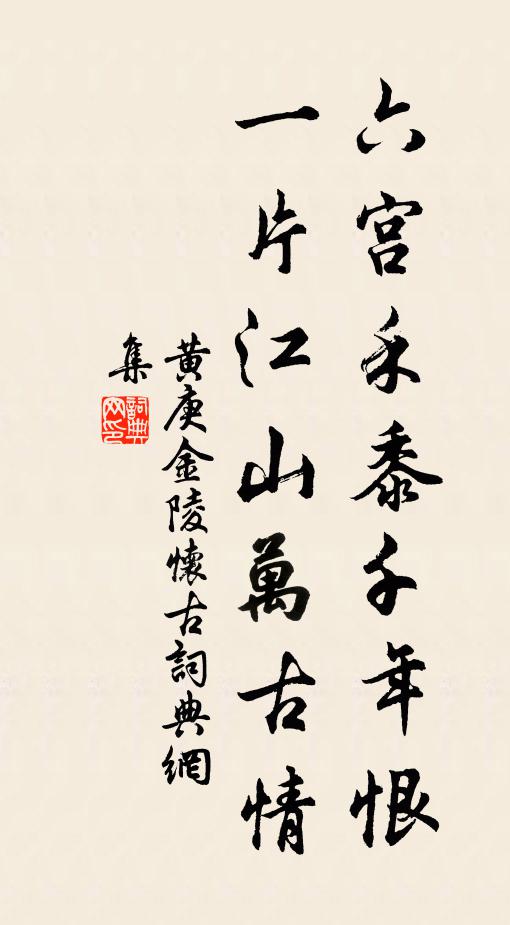 六宮禾黍千年恨
一片江山萬古情
黄庚金陵懷古詞典網
集
詞典
网印